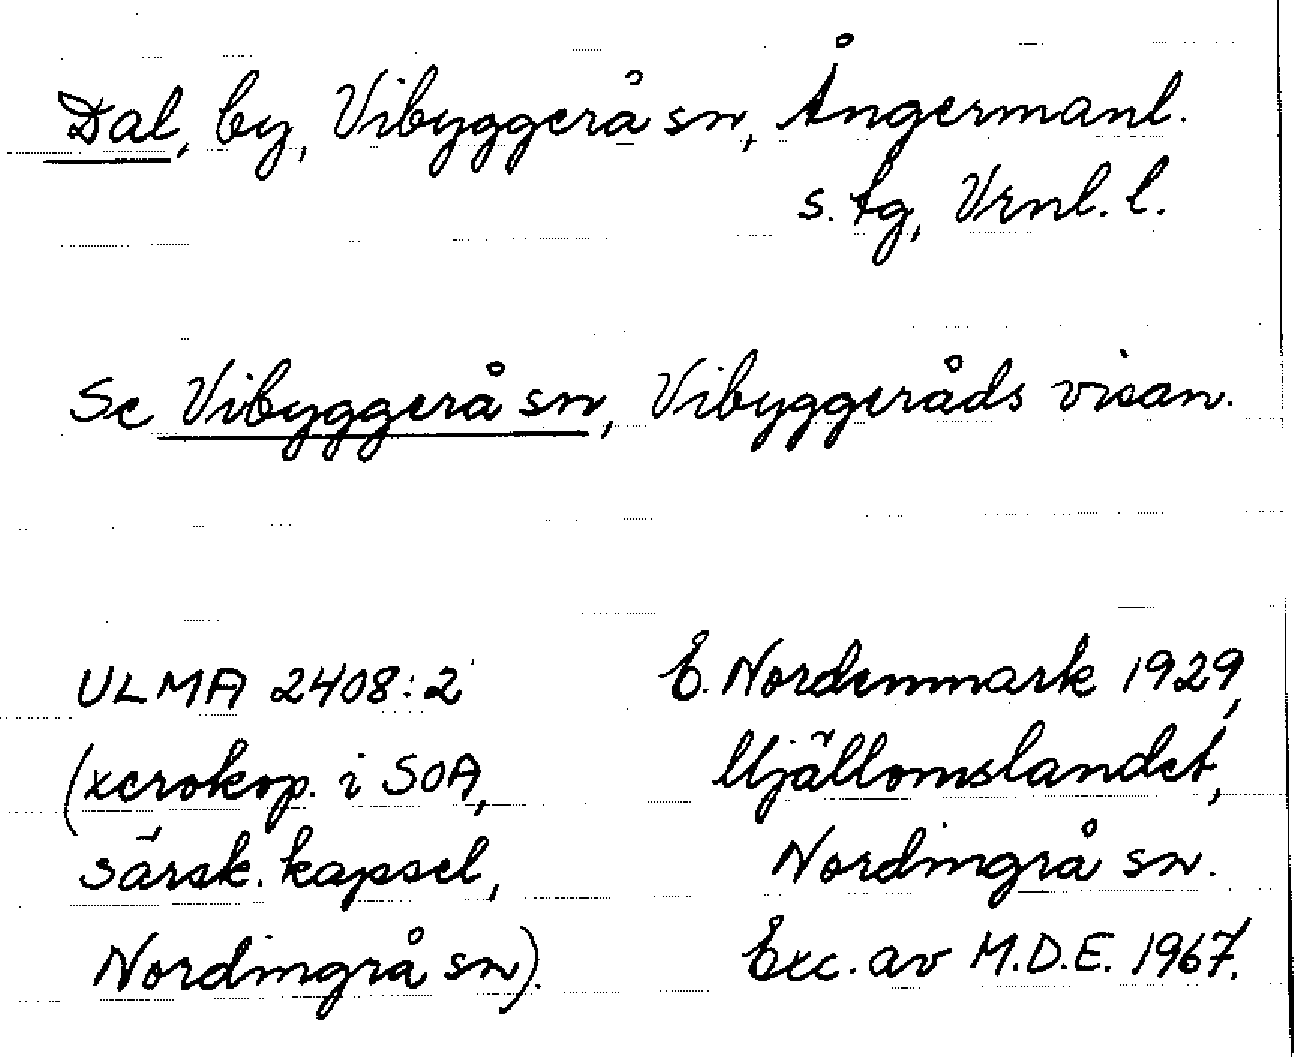 Dal, by, Vibyggerå sn, Ångermanl.
s. tg, Vrnl. l.
Se Vibyggerå sn, Vibyggeråds visan.
ULMA 2408:2
(xerokop. i SOA,
särsk. kapsel,
Nordingrå sn).
E. Nordenmark 1929,
Mjällomslandet,
Nordingrå sn.
Exc. av M.D.E. 1967.